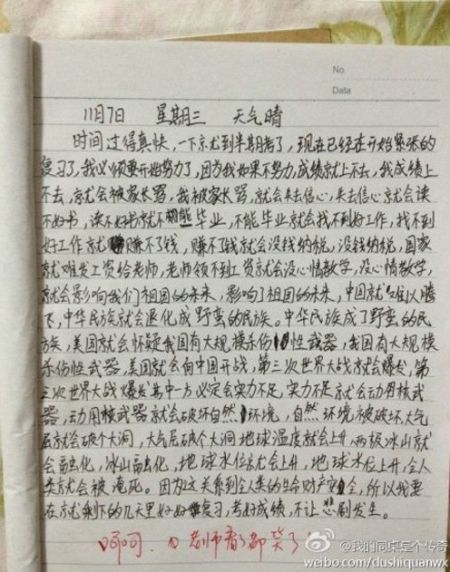 No.
Data
11月7日 星期三 天气晴
时间过得真快，一下就到半期考了，现在已经在开始紧张的
复习了，我必须要开始努力了，因为我如果不努力，成绩就上不去，我成绩上
不去，就会被家长骂，我被家长骂，就会失去信心，失去信心就会读
不好书，读不好书就不能毕业，不能毕业就会找不到好工作，找不到
好工作就赚不了钱，赚不了钱就会没钱纳税，没钱纳税，国家
就难发工资给老师，老师领不到工资就会没心情教学，没心情教学，
就会影响我们祖国的未来，影响了祖国的未来，中国就难以腾
飞，中华民族就会退化成野蛮的民族。中华民族成了野蛮的民
族，美国就会怀疑我国有大规模杀伤性武器，我国有大规模
杀伤性武器，美国就会向中国开战，第三次世界大战就会爆发，第
三次世界大战爆发其中一方必定会实力不足，实力不足就会动用核武
器，动用核武器就会破坏自然环境，自然环境被破坏，大气
层就会破个大洞，大气层破个大洞地球温度就会上升，两极冰山就
会融化，冰山融化，地球水位就会上升，地球水位上升，全人
类就会被淹死。因为这关系到全人类的生命财产安全，所以我要
在就剩下的几天里好好复习，考好成绩，不让悲剧发生。
呵呵。 老师看了都笑了
@我的同桌是个传奇
weibo.com/dushiquanwx